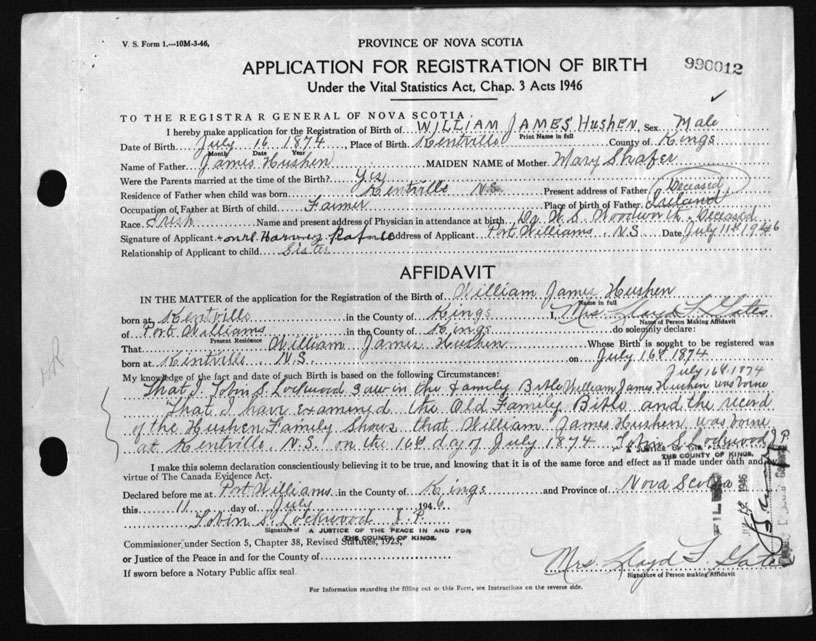 V. S. Form 1.—10M-3-46,
PROVINCE OF NOVA SCOTIA
APPLICATION FOR REGISTRATION OF BIRTH
990012
Under the Vital Statistics Act, Chap. 3 Acts 1946
TO THE REGISTRAR GENERAL OF NOVA SCOTIA
I hereby make application for the Registration of Birth of WILLIAM JAMES HUSHEN, Sex Male
Print Name in full
Date of Birth July 16 1874, Place of Birth Kentville County of Kings
Month Date Year
Name of Father James Hushen MAIDEN NAME of Mother Mary Shafer
Were the Parents married at the time of the Birth? Yes
Residence of Father when child was born Kentville N.S. Present address of Father Deceased
Occupation of Father at Birth of child Farmer Place of birth of Father Ireland
Race Irish Name and present address of Physician in attendance at birth Dr. W. S. Woodworth - Deceased
Signature of Applicant Address of Applicant Port Williams N.S. Date July 11th 1946
Relationship of Applicant to child Sister
AFFIDAVIT
IN THE MATTER of the application for the Registration of Birth of William James Hushen
Name in full
born at Kentville in the County of Kings I, Mrs. Lloyd F. Gates
Name of Person Making Affidavit
of Port Williams in the County of Kings do solemnly declare:
Present Residence
That William James Hushen Whose Birth is sought to be registered was
born at Kentville, N.S. on July 16th 1874
My knowledge of the fact and date of such Birth is based on the following Circumstances: July 16th 1874
That I John S. Lockwood saw in the family Bible William James Hushen was borne
That I have examined the Old Family Bible and the record
of the Hushen Family Shows that William James Hushen was borne
at Kentville, N.S. on the 16th day of July 1874 John S. Lockwood J.P.
A JUSTICE OF THE PEACE
THE COUNTY OF KINGS.
I make this solemn declaration conscientiously believing it to be true, and knowing that it is of the same force and effect as if made under oath and
virtue of The Canada Evidence Act.
Declared before me at Port Williams in the County of Kings and Province of Nova Scotia
this 11 day of July 1946
John S. Lockwood J.P.
Signature of A JUSTICE OF THE PEACE IN AND FOR
THE COUNTY OF KINGS.
Commissioner under Section 5, Chapter 38, Revised Statutes, 1923,
or Justice of the Peace in and for the County of
Mrs. Lloyd F. Gates
Signature of Person making Affidavit
If sworn before a Notary Public affix seal.
For Information regarding the filling out of this Form, see Instructions on the reverse side.